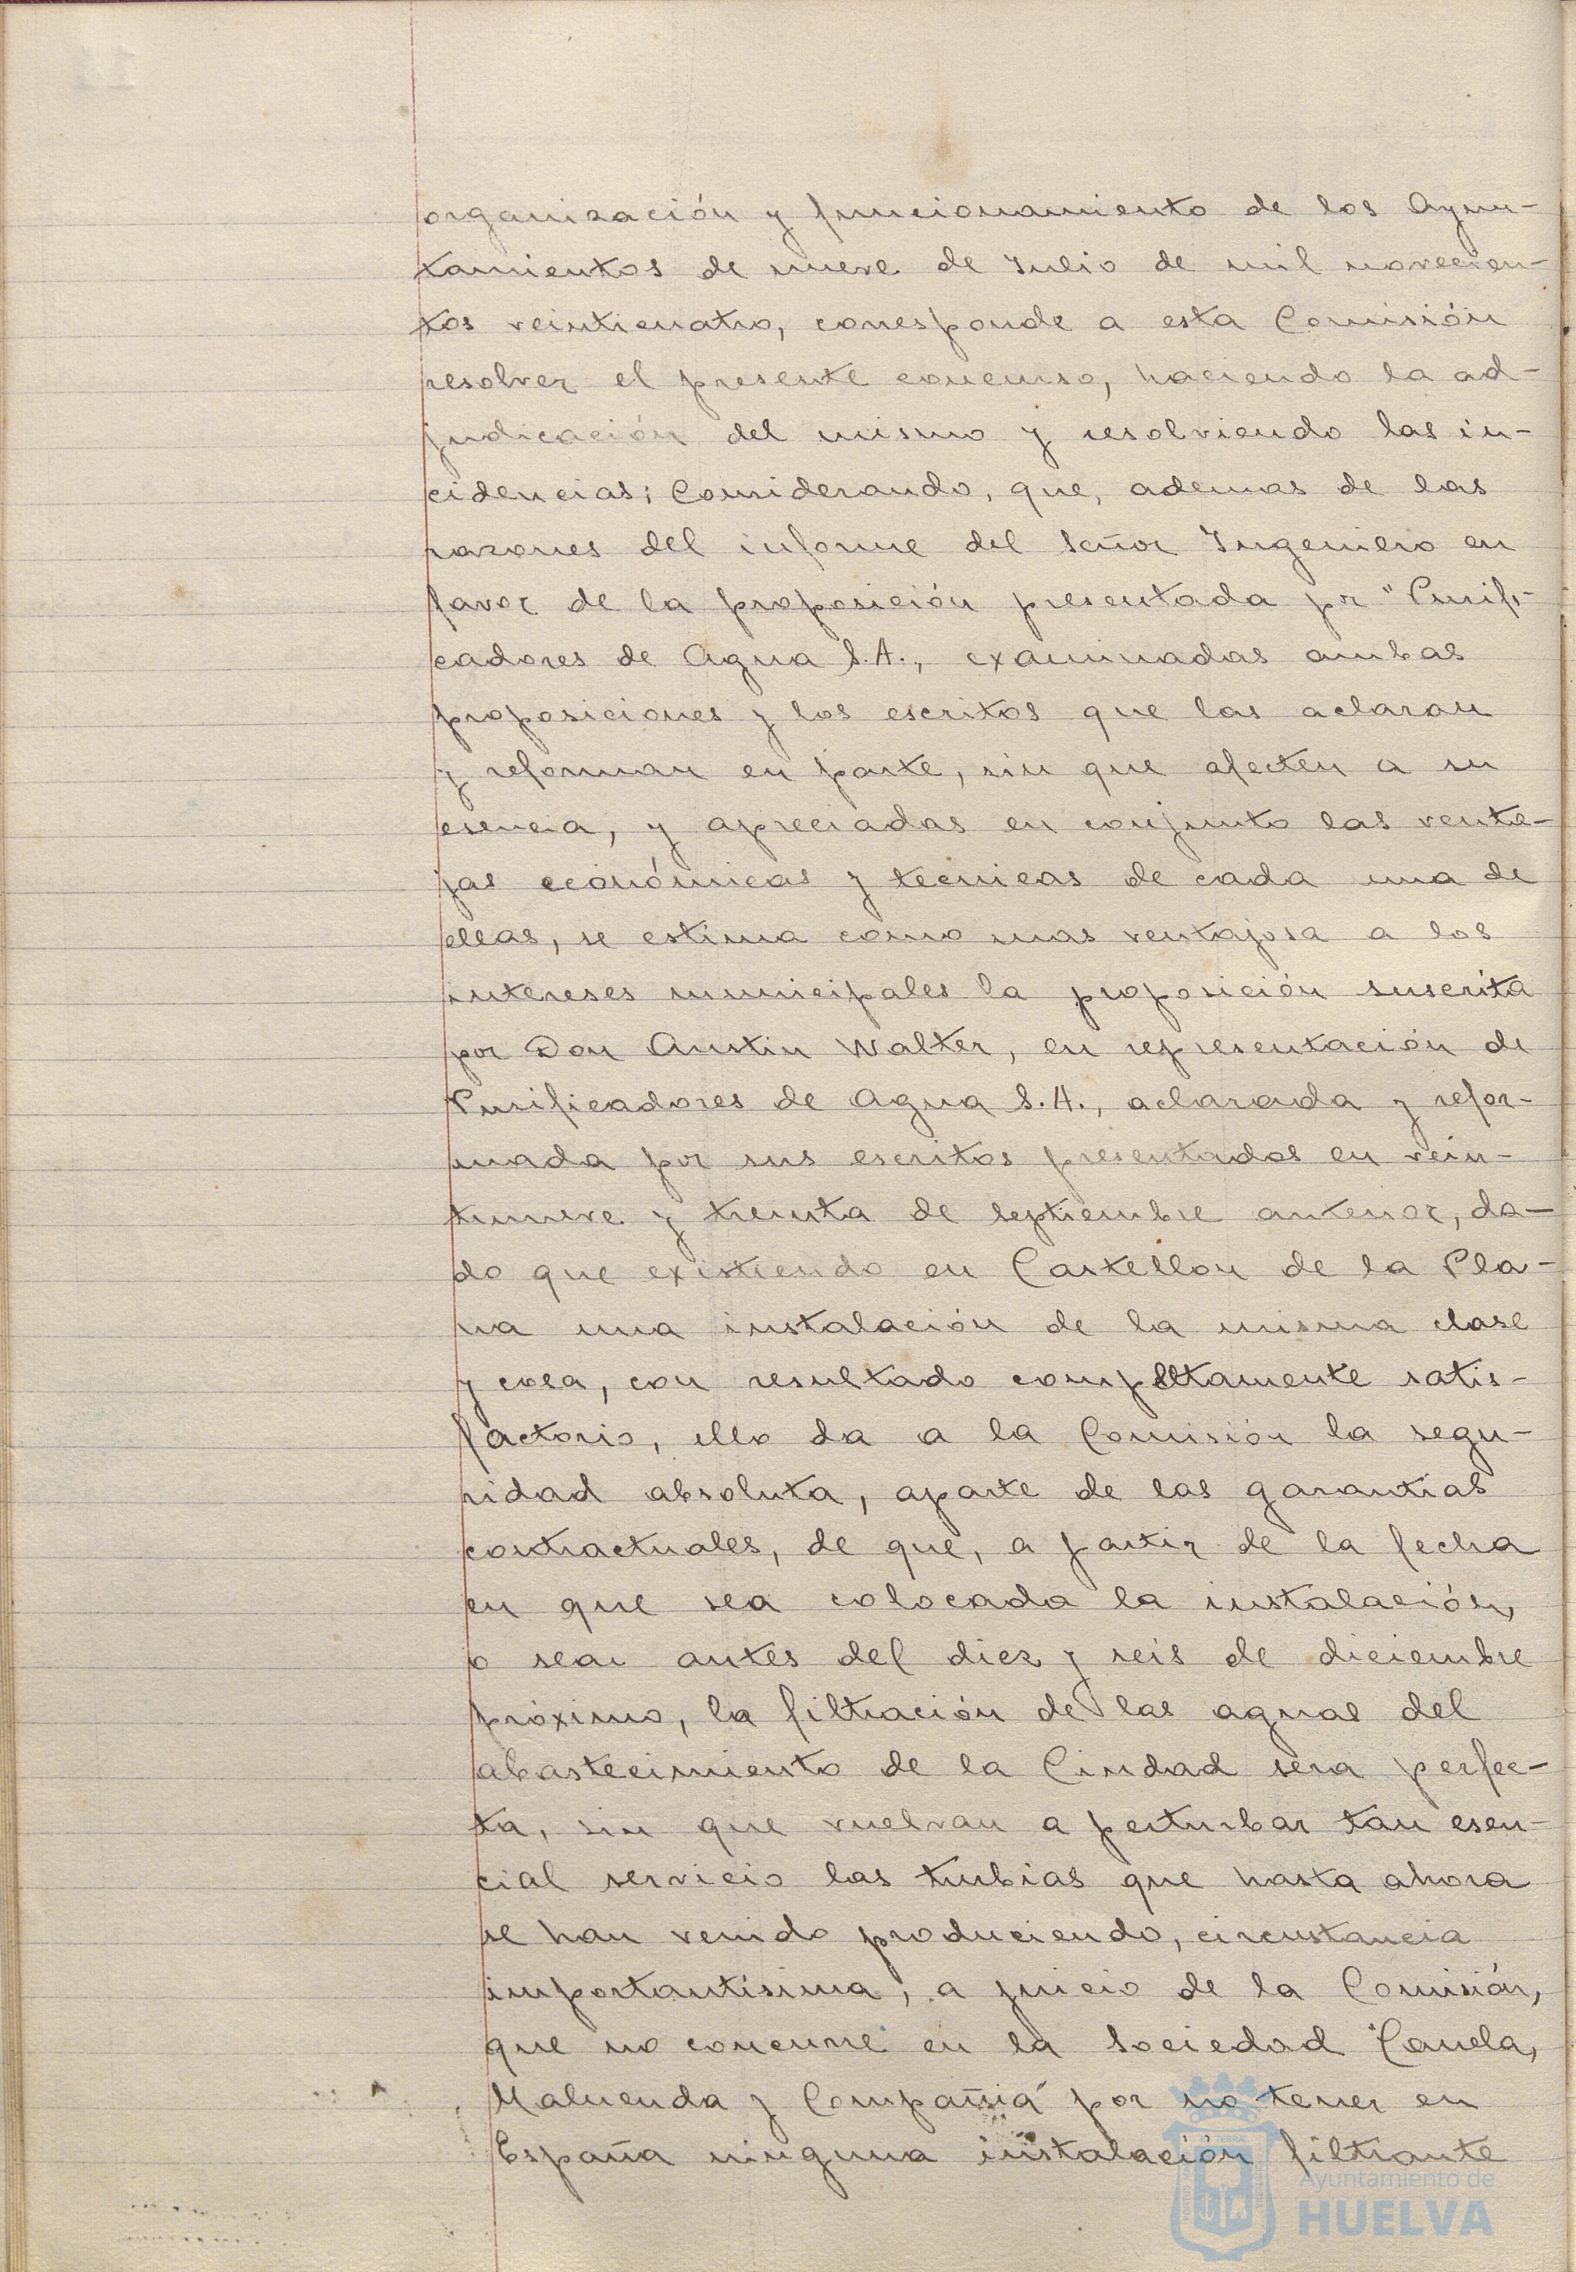 organización y funcionamiento de los Ayun-
tamientos de nueve de Julio de mil novecien-
tos veinticuatro, corresponde a esta Comisión
resolver el presente concurso, haciendo la ad-
judicación del mismo y resolviendo las in-
cidencias; Considerando, que, ademas de las
razones del informe del Señor Ingeniero en
favor de la proposición presentada pr "Purifi-
cadores de Agua S.A., examinadas ambas
proposiciones y los escritos que las aclaran
y reforman en parte, sin que afecten a su
esencia, y apreciadas en conjunto las venta-
jas económicas y tecnicas de cada una de
ellas, se estima como mas ventajosa a los
intereses municipales la proposición suscrita
por Don Austin Walter, en representación de
Purificadores de Agua S.A., aclarada y refor-
mada por sus escritos presentados en vein-
tinueve y treinta de septiembre anterior, da-
do que existiendo en Castellon de la Pla-
na una instalación de la misma clase
y casa, con resultado completamente satis-
factorio, ello da a la Comisión la segu-
ridad absoluta, aparte de las garantias
contractuales, de que, a partir de la fecha
en que sea colocada la instalación,
o sea antes del diez y seis de diciembre
próximo, la filtración de las aguas del
abastecimiento de la Ciudad sera perfec-
ta, sin que vuelvan a perturbar tan esen-
cial servicio las turbias que hasta ahora
se han venido produciendo, circustancia
importantísima, a juicio de la Comisión,
que no concurre en la Sociedad "Canela,
Maluenda y Compañia" por no tener en
España ninguna instalación filtrante
Ayuntamiento de
HUELVA